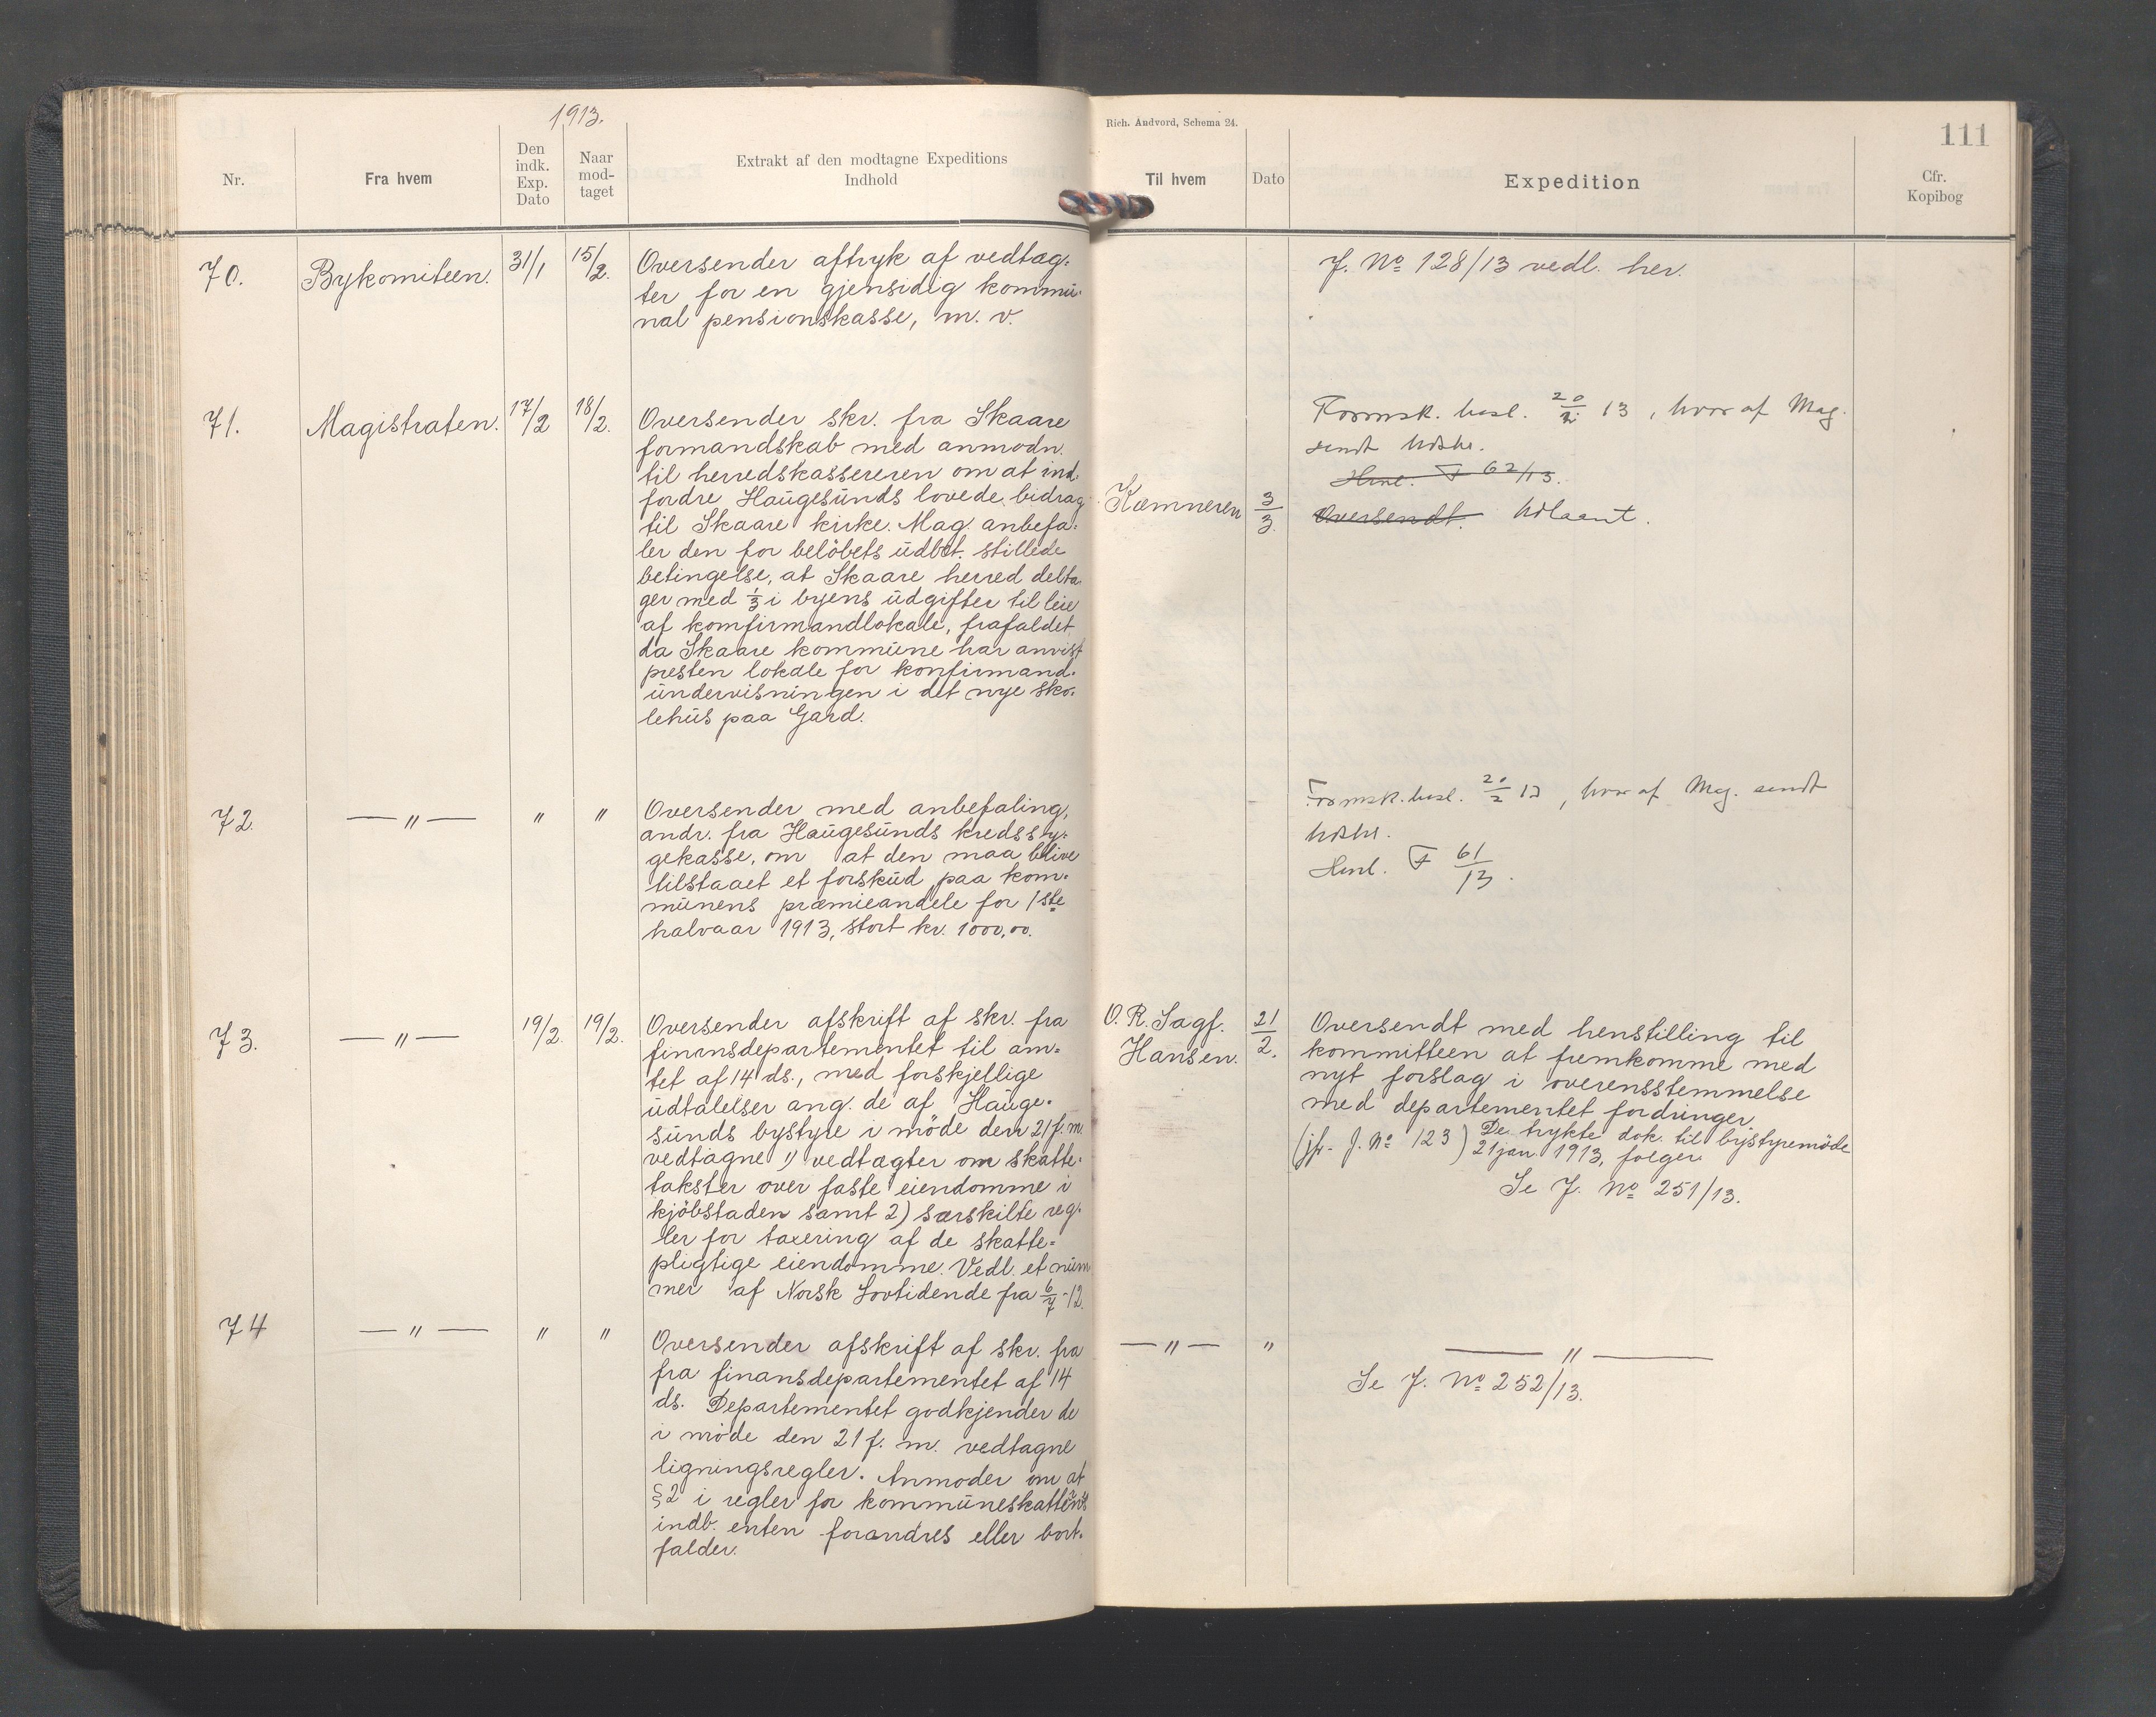 1913.
Rich. Andvord, Schema 24.
111
Nr.
Fra hvem
Den indk. Exp. Dato
Naar mod- taget
Extrakt af den modtagne Expeditions Indhold
Til hvem
Dato
Expedition
Cfr. Kopibog
70.
Bykomiteen.
31/1
15/2.
Oversender aftryk af vedtæg-
ter for en gjensidig kommu-
nal pensionskasse, m. v.
J. No 128/13 vedl. her.
71.
Magistraten.
17/2
18/2.
Oversender skr. fra Skaare
formandskab med anmodn.
til herredskassereren om at ind-
fordre Haugesunds lovede bidrag
til Skaare kirke. Mag. anbefa-
ler den for beløbets udbet. stillede
betingelse, at Skaare herred delta-
ger med 1/3 i byens udgifter til leie
af komfirmandlokale, frafaldet
da Skaare kommune har anvist
presten lokale for konfirmand-
undervisningen i det nye sko-
lehus paa Gard.
Kæmneren
3/3.
Formsk. besl. 20/2 13, hvor af Mag.
sendt udskr.
Henl. F 62/13.
Oversendt. Udlaant.
72.
— " —
"
"
Oversender med anbefaling,
andr. fra Haugesunds kredssy-
gekasse, om at den maa blive
tilstaaet et forskud paa kom-
munens præmieandele for 1ste
halvaar 1913, stort kr. 1000,00.
Formsk. besl. 20/2 13, hvor af Mag. sendt
udskr.
Henl. F 61/13.
73.
— " —
19/2.
19/2.
Oversender afskrift af skr. fra
finansdepartementet til am-
tet af 14 ds., med forskjellige
udtalelser ang. de af Hauge-
sunds bystyre i møde den 21 f. m.
vedtagne 1) vedtægter om skatte-
takster over faste eiendomme i
kjøbstaden samt 2) særskilte reg-
ler for taxering af de skatte-
pligtige eiendomme. Vedl. et num
mer af Norsk Lovtidende fra 6/7-12.
O. R. Sagf.
Hansen.
21/2.
Oversendt med henstilling til
kommitteen at fremkomme med
nyt forslag i overensstemmelse
med departementet fordringer.
(jfr. J. No 123) De trykte dok. til bystyremøde
21 jan. 1913, følger.
Se J. No 251/13.
74
— " —
"
"
Oversender afskrift af skr. fra
fra finansdepartementet af 14
ds. Departementet godkjender de
i møde den 21 f. m. vedtagne
ligningsregler. Anmoder om at
§ 2 i regler for kommuneskattens
indb. enten forandres eller bort-
falder.
— " —
"
— " —
Se J. No 252/13.